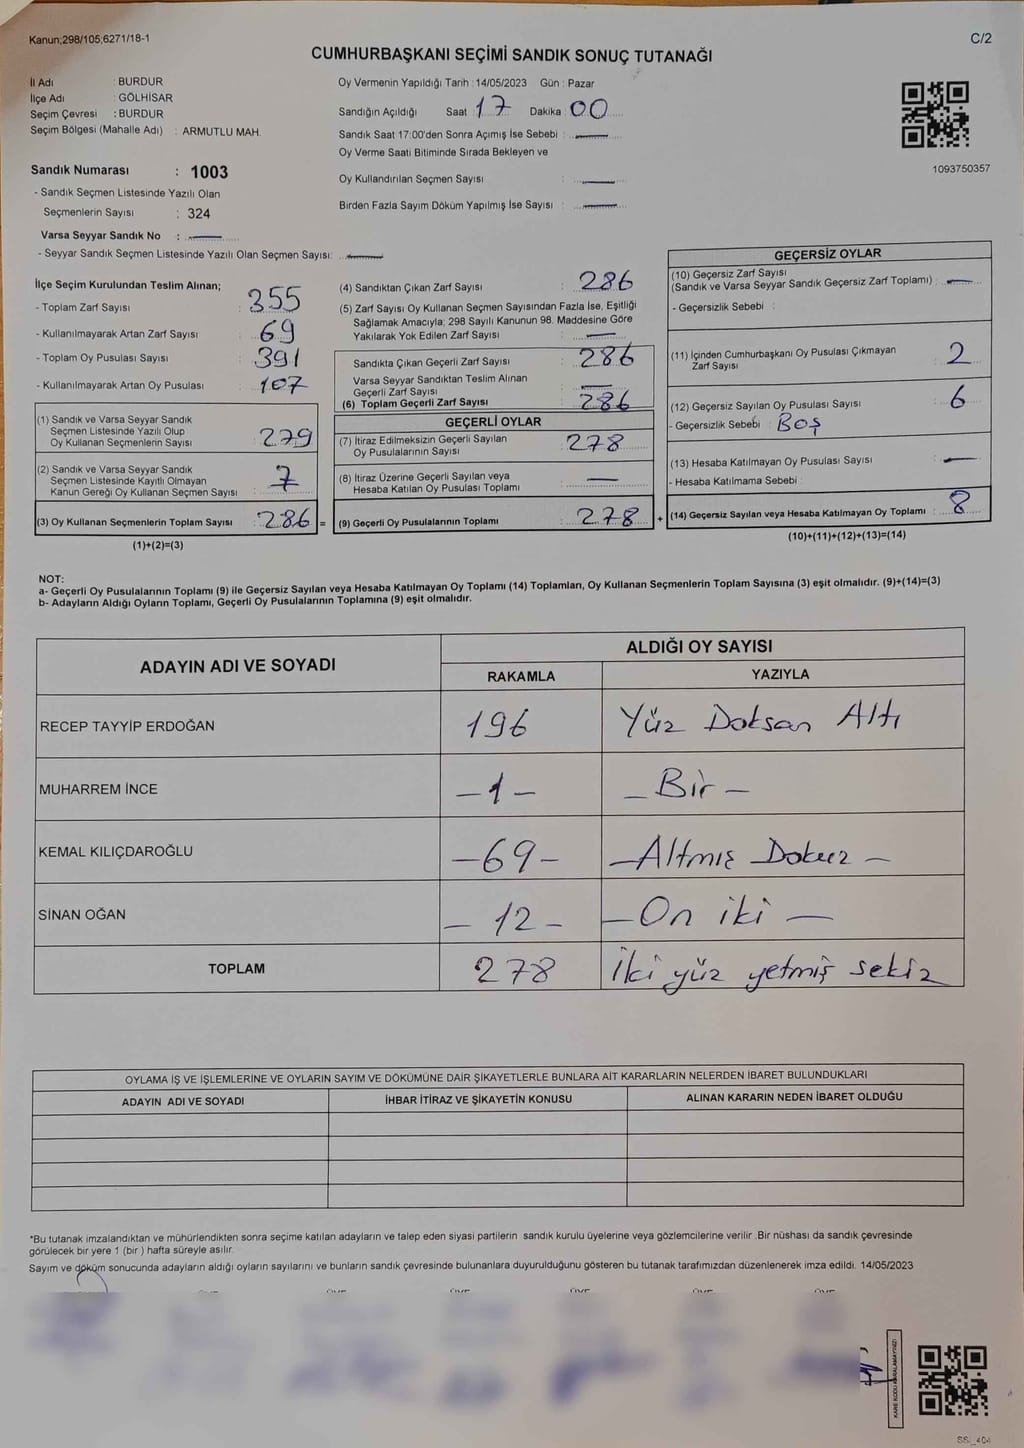 Kanun;298/105;6271/18-1
C/2
CUMHURBAŞKANI SEÇİMİ SANDIK SONUÇ TUTANAĞI
İl Adı : BURDUR
İlçe Adı : GÖLHİSAR
Seçim Çevresi : BURDUR
Seçim Bölgesi (Mahalle Adı) : ARMUTLU MAH.
Oy Vermenin Yapıldığı Tarih : 14/05/2023 Gün : Pazar
Sandığın Açıldığı Saat 17 Dakika 00
Sandık Saat 17:00'den Sonra Açımış İse Sebebi :
Oy Verme Saati Bitiminde Sırada Bekleyen ve
Oy Kullandırılan Seçmen Sayısı :
Birden Fazla Sayım Döküm Yapılmış İse Sayısı :
1093750357
Sandık Numarası : 1003
- Sandık Seçmen Listesinde Yazılı Olan
Seçmenlerin Sayısı : 324
Varsa Seyyar Sandık No :
- Seyyar Sandık Seçmen Listesinde Yazılı Olan Seçmen Sayısı:
İlçe Seçim Kurulundan Teslim Alınan;
- Toplam Zarf Sayısı : 355
- Kullanılmayarak Artan Zarf Sayısı : 69
- Toplam Oy Pusulası Sayısı : 391
- Kullanılmayarak Artan Oy Pusulası : 107
(1) Sandık ve Varsa Seyyar Sandık
Seçmen Listesinde Yazılı Olup
Oy Kullanan Seçmenlerin Sayısı : 279
(2) Sandık ve Varsa Seyyar Sandık
Seçmen Listesinde Kayıtlı Olmayan
Kanun Gereği Oy Kullanan Seçmen Sayısı : 7
(3) Oy Kullanan Seçmenlerin Toplam Sayısı : 286 =
(1)+(2)=(3)
(4) Sandıktan Çıkan Zarf Sayısı : 286
(5) Zarf Sayısı Oy Kullanan Seçmen Sayısından Fazla İse, Eşitliği
Sağlamak Amacıyla; 298 Sayılı Kanunun 98. Maddesine Göre
Yakılarak Yok Edilen Zarf Sayısı :
Sandıkta Çıkan Geçerli Zarf Sayısı : 286
Varsa Seyyar Sandıktan Teslim Alınan
Geçerli Zarf Sayısı :
(6) Toplam Geçerli Zarf Sayısı : 286
GEÇERLİ OYLAR
(7) İtiraz Edilmeksizin Geçerli Sayılan
Oy Pusulalarının Sayısı : 278
(8) İtiraz Üzerine Geçerli Sayılan veya
Hesaba Katılan Oy Pusulası Toplamı :
(9) Geçerli Oy Pusulalarının Toplamı : 278 +
GEÇERSİZ OYLAR
(10) Geçersiz Zarf Sayısı
(Sandık ve Varsa Seyyar Sandık Geçersiz Zarf Toplamı) :
- Geçersizlik Sebebi :
(11) İçinden Cumhurbaşkanı Oy Pusulası Çıkmayan
Zarf Sayısı : 2
(12) Geçersiz Sayılan Oy Pusulası Sayısı : 6
- Geçersizlik Sebebi : BOŞ
(13) Hesaba Katılmayan Oy Pusulası Sayısı :
- Hesaba Katılmama Sebebi :
(14) Geçersiz Sayılan veya Hesaba Katılmayan Oy Toplamı : 8
(10)+(11)+(12)+(13)=(14)
NOT:
a- Geçerli Oy Pusulalarının Toplamı (9) ile Geçersiz Sayılan veya Hesaba Katılmayan Oy Toplamı (14) Toplamları, Oy Kullanan Seçmenlerin Toplam Sayısına (3) eşit olmalıdır. (9)+(14)=(3)
b- Adayların Aldığı Oyların Toplamı, Geçerli Oy Pusulalarının Toplamına (9) eşit olmalıdır.
ADAYIN ADI VE SOYADI
ALDIĞI OY SAYISI
RAKAMLA YAZIYLA
RECEP TAYYİP ERDOĞAN 196 Yüz Doksan Altı
MUHARREM İNCE -1- - Bir -
KEMAL KILIÇDAROĞLU -69- -Altmış Dokuz -
SİNAN OĞAN - 12 - - On iki -
TOPLAM 278 iki yüz yetmiş sekiz
OYLAMA İŞ VE İŞLEMLERİNE VE OYLARIN SAYIM VE DÖKÜMÜNE DAİR ŞİKAYETLERLE BUNLARA AİT KARARLARIN NELERDEN İBARET BULUNDUKLARI
ADAYIN ADI VE SOYADI İHBAR İTİRAZ VE ŞİKAYETİN KONUSU ALINAN KARARIN NEDEN İBARET OLDUĞU
*Bu tutanak imzalandıktan ve mühürlendikten sonra seçime katılan adayların ve talep eden siyasi partilerin sandık kurulu üyelerine veya gözlemcilerine verilir .Bir nüshası da sandık çevresinde
görülecek bir yere 1 (bir ) hafta süreyle asılır.
Sayım ve döküm sonucunda adayların aldığı oyların sayılarını ve bunların sandık çevresinde bulunanlara duyurulduğunu gösteren bu tutanak tarafımızdan düzenlenerek imza edildi. 14/05/2023
KARE KODU KARALAMAYINIZ!